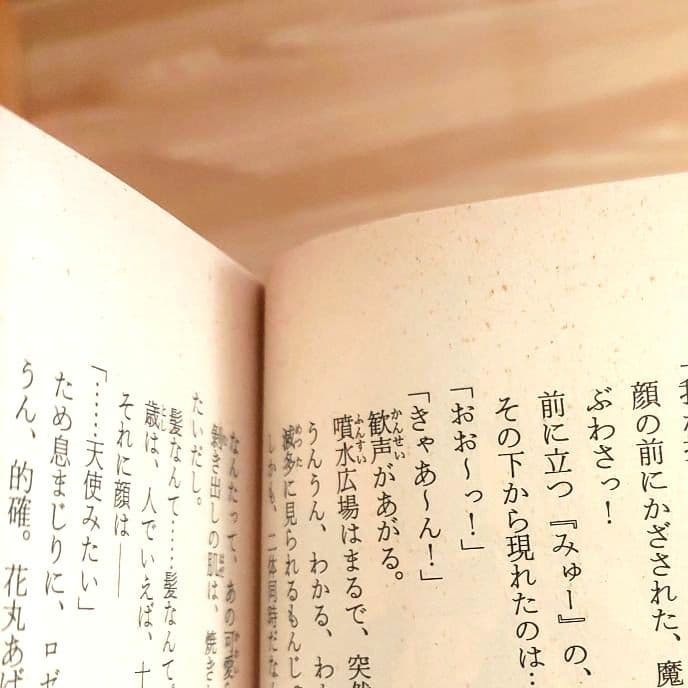 顔の前にかざされた、魔
ぶわさっ！
前に立つ『みゅー』の、
その下から現れたのは…
「おお〜っ！」
「きゃあ〜ん！」
歓声があがる。
噴水広場はまるで、突然
うんうん、わかる、わ
滅多に見られるもんじゃ
しかも、二体同時だなん
なんたって、あの可愛
剝き出しの肌は、焼き
たいだし。
髪なんて……髪なんて
歳は、人でいえば、十
それに顔は――
「……天使みたい」
ため息まじりに、ロゼ
うん、的確。花丸あげ